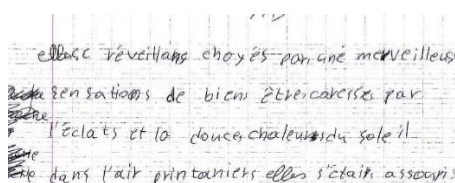 ellese réveillans choyés par une merveilleus
sensations de biens êtres caresses par
l'éclats et la douces chaleurs du soleil
dans l'air printaniers elles s'étais assouris